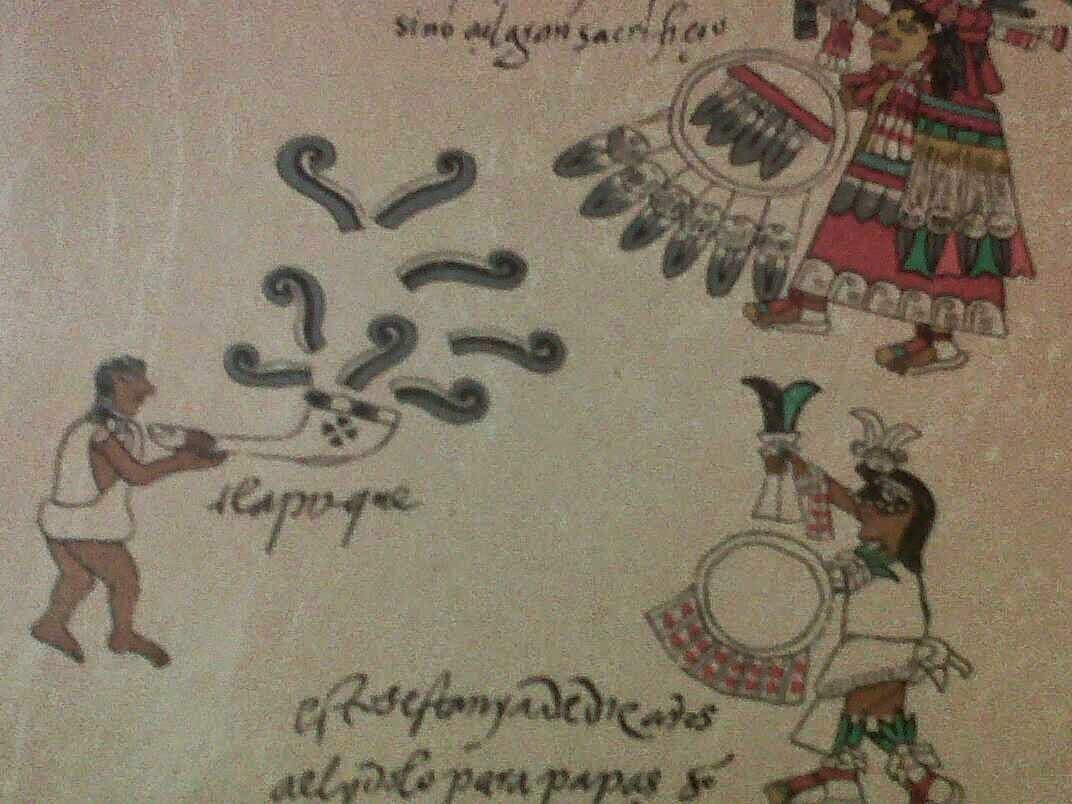 sino al gran sacrificio
tlapuque
estos estan ya dedicados
al ydolo para papas